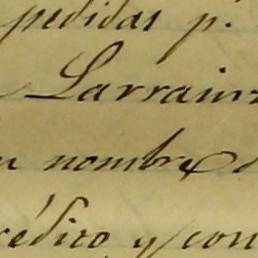 pedidas p.
Larrainz
n nombre d
rédito y con